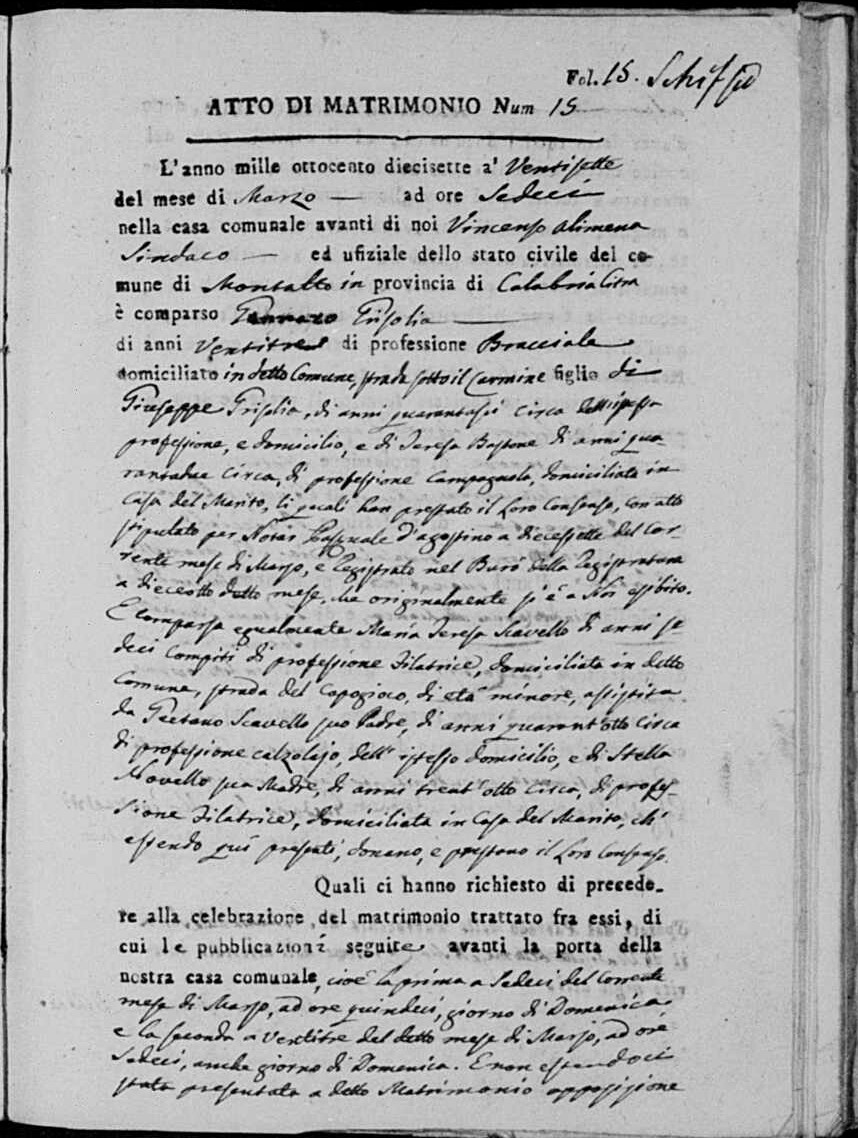 Fol. 15.
ATTO DI MATRIMONIO Num 15
L'anno mille ottocento diecisette a' Ventisette
del mese di Marzo — ad ore Sedeci
nella casa comunale avanti di noi Vincenzo Alimena
Sindaco — ed ufiziale dello stato civile del co-
mune di Montalto in provincia di Calabria Citra
è comparso Gennaro Grisolia
di anni Ventitre di professione Bracciale
domiciliato in detto Comune, strada sotto il Carmine figlio di
Giuseppe Grisolia, di anni quarantasei circa dell'istessa
professione, e domicilio, e di Teresa Bastone di anni qua
rantadue circa, di professione Campagnola, domiciliata in
Casa del Marito, li quali han prestato il Loro Consenso, con atto
stipulato per Notar Pasquale d'Agostino a diecessette del Cor-
rente mese di Marzo, e registrato nel Burò della Registratura
a dieceotto detto mese, che originalmente si è a Noi esibito.
E comparsa egualmente Maria Teresa Scavello di anni se
deci compiti di professione Filatrice, domiciliata in detto
Comune, strada del Capogioco, di età minore, assistita
da Gaetano Scavello suo Padre, di anni quarant'otto circa
di professione calzolajo, dell' istesso domicilio, e di Stella
Novello sua Madre, di anni trent'otto circa, di profes-
sione Filatrice, domiciliata in Casa del Marito, ch'
essendo quì presenti, donano, e prestano il Loro Consenso.
Quali ci hanno richiesto di precede-
re alla celebrazione del matrimonio trattato fra essi, di
cui le pubblicazioni seguite avanti la porta della
nostra casa comunale, cioè la prima a Sedeci del Corrente
mese di Marzo, ad ore quindeci, giorno di Domenica
e la seconda a Ventitre del detto mese di Marzo, ad ore
Sedeci, anche giorno di Domenica. E non essendoci
stata presentata a detto Matrimonio opposizione